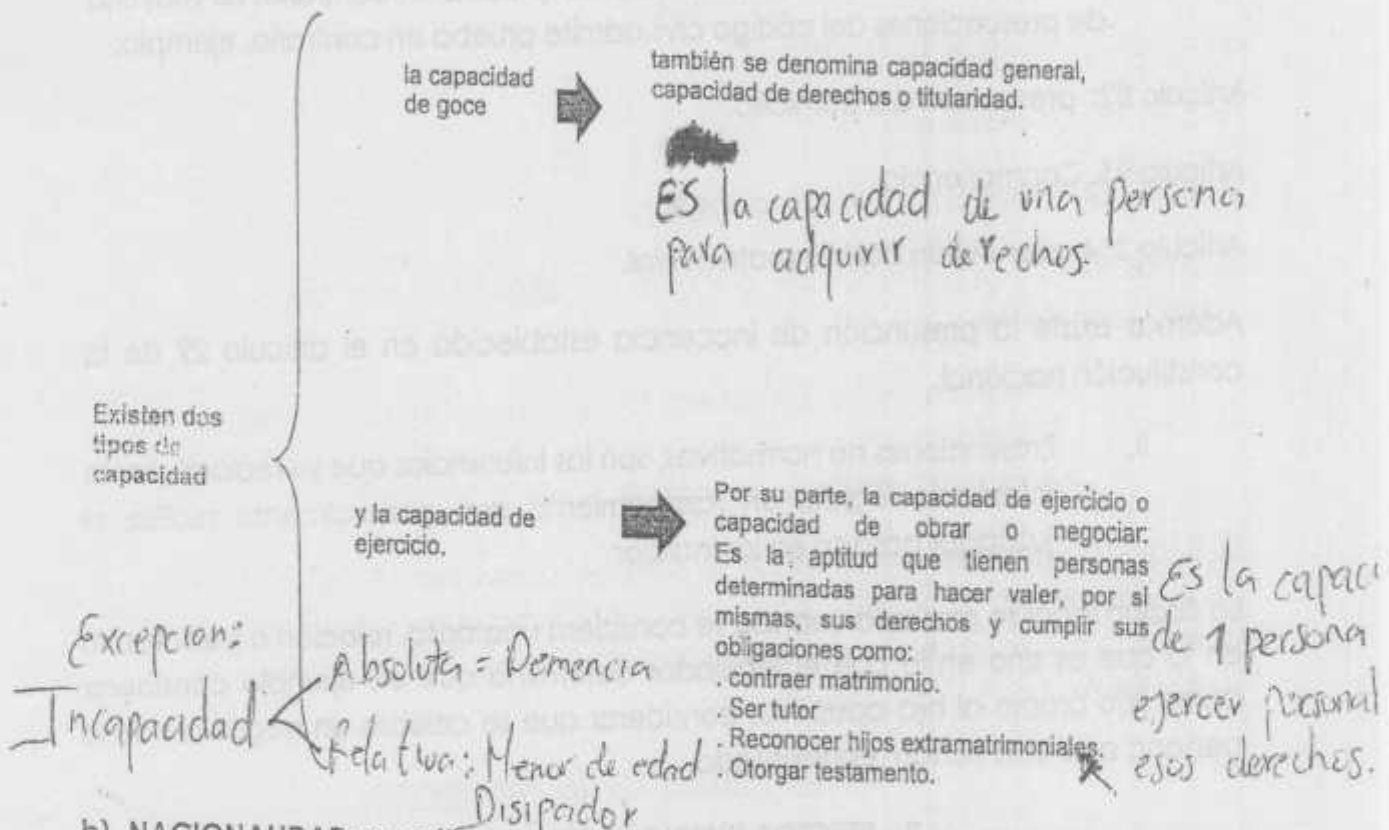 la capacidad
de goce
también se denomina capacidad general,
capacidad de derechos o titularidad.
ES la capacidad de una persona
para adquirir derechos.
Existen dos
tipos de
capacidad
y la capacidad de
ejercicio.
Por su parte, la capacidad de ejercicio o
capacidad de obrar o negociar:
Es la aptitud que tienen personas
determinadas para hacer valer, por sí
mismas, sus derechos y cumplir sus
obligaciones como:
. contraer matrimonio.
. Ser tutor
. Reconocer hijos extramatrimoniales.
. Otorgar testamento.
Es la capaci
de 1 persona
ejercer personal
esos derechos.
Excepcion:
Incapacidad
Absoluta = Demencia
Relativa: Menor de edad
Disipador
b) NACIONALIDAD